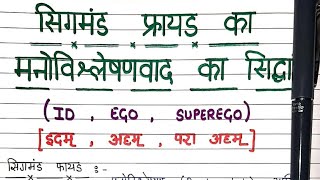 सिगमंड फ्रायड का
मनोविश्लेषणवाद का सिद्धा
(ID, EGO, SUPEREGO)
[इदम्, अहम्, परा अहम्]
सिगमंड फ्रायड :-